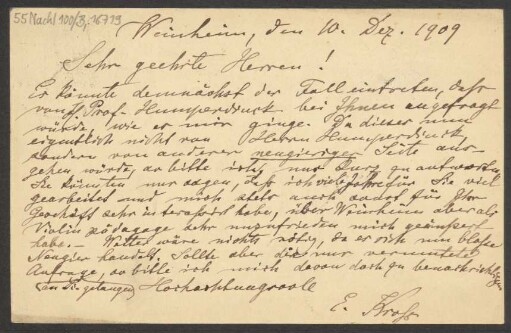 55 Nachl 100/B, 16719
Weinheim, den 10. Dez. 1909
Sehr geehrte Herren!
Es könnte demnächst der Fall eintreten, daß
von Prof. Humperdinck bei Ihnen angefragt
würde wie es mir ginge. Da dieses nun
eigentlich nicht von Herrn Humperdinck,
sondern von anderer neugieriger Seite aus-
gehen würde, so bitte ich, nur kurz zu antworten,
Sie könnten nur sagen, daß ich viele Jahre für Sie viel
gearbeitet und mich stets auch für Ihr
Geschäft sehr interessirt habe, über Weinheim aber als
Violinpädagoge sehr unzufrieden mich geäußert
habe. – Weiter wäre nichts nötig, da es sich nun bloße
Neugier handelt. Sollte aber die nur vermutete
Anfrage, so bitte ich mich davon doch zu benachrichtigen
(an Sie gelangen) Hochachtungsvoll
E. Kross